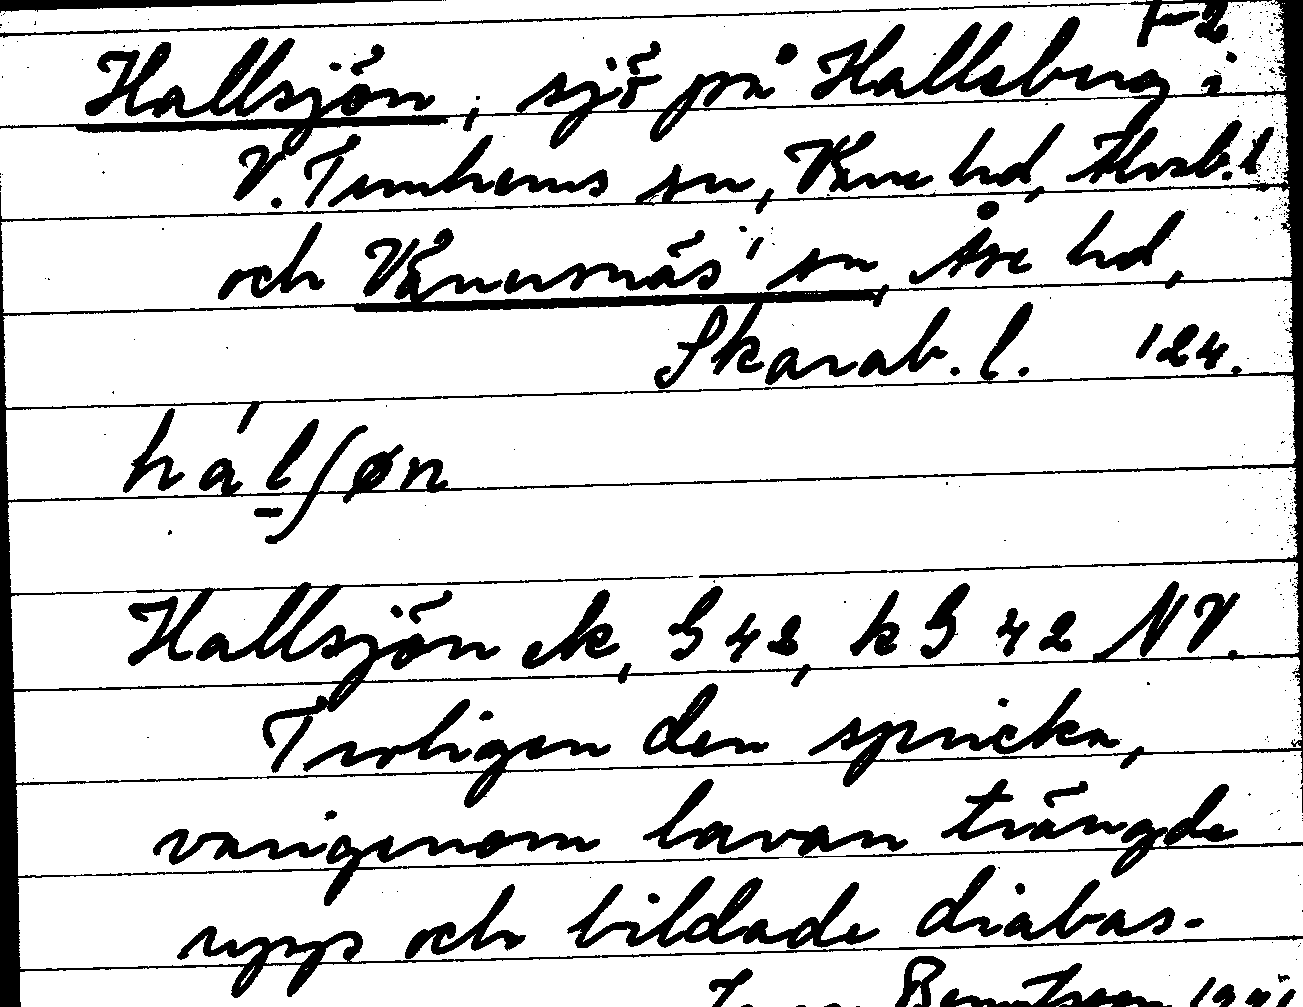 1-2
Hallsjön, sjö på Halleberg i
V. Tunhems sn, Väne hd, Älvsb. l.
och Vänersnäs' sn, Åse hd,
Skarab. l. 124.
Hallsjön ek, G 42, kG 42 NV.
Troligen den spricka,
varigenom lavan trängde
upp och bildade diabas-
Bengtsson